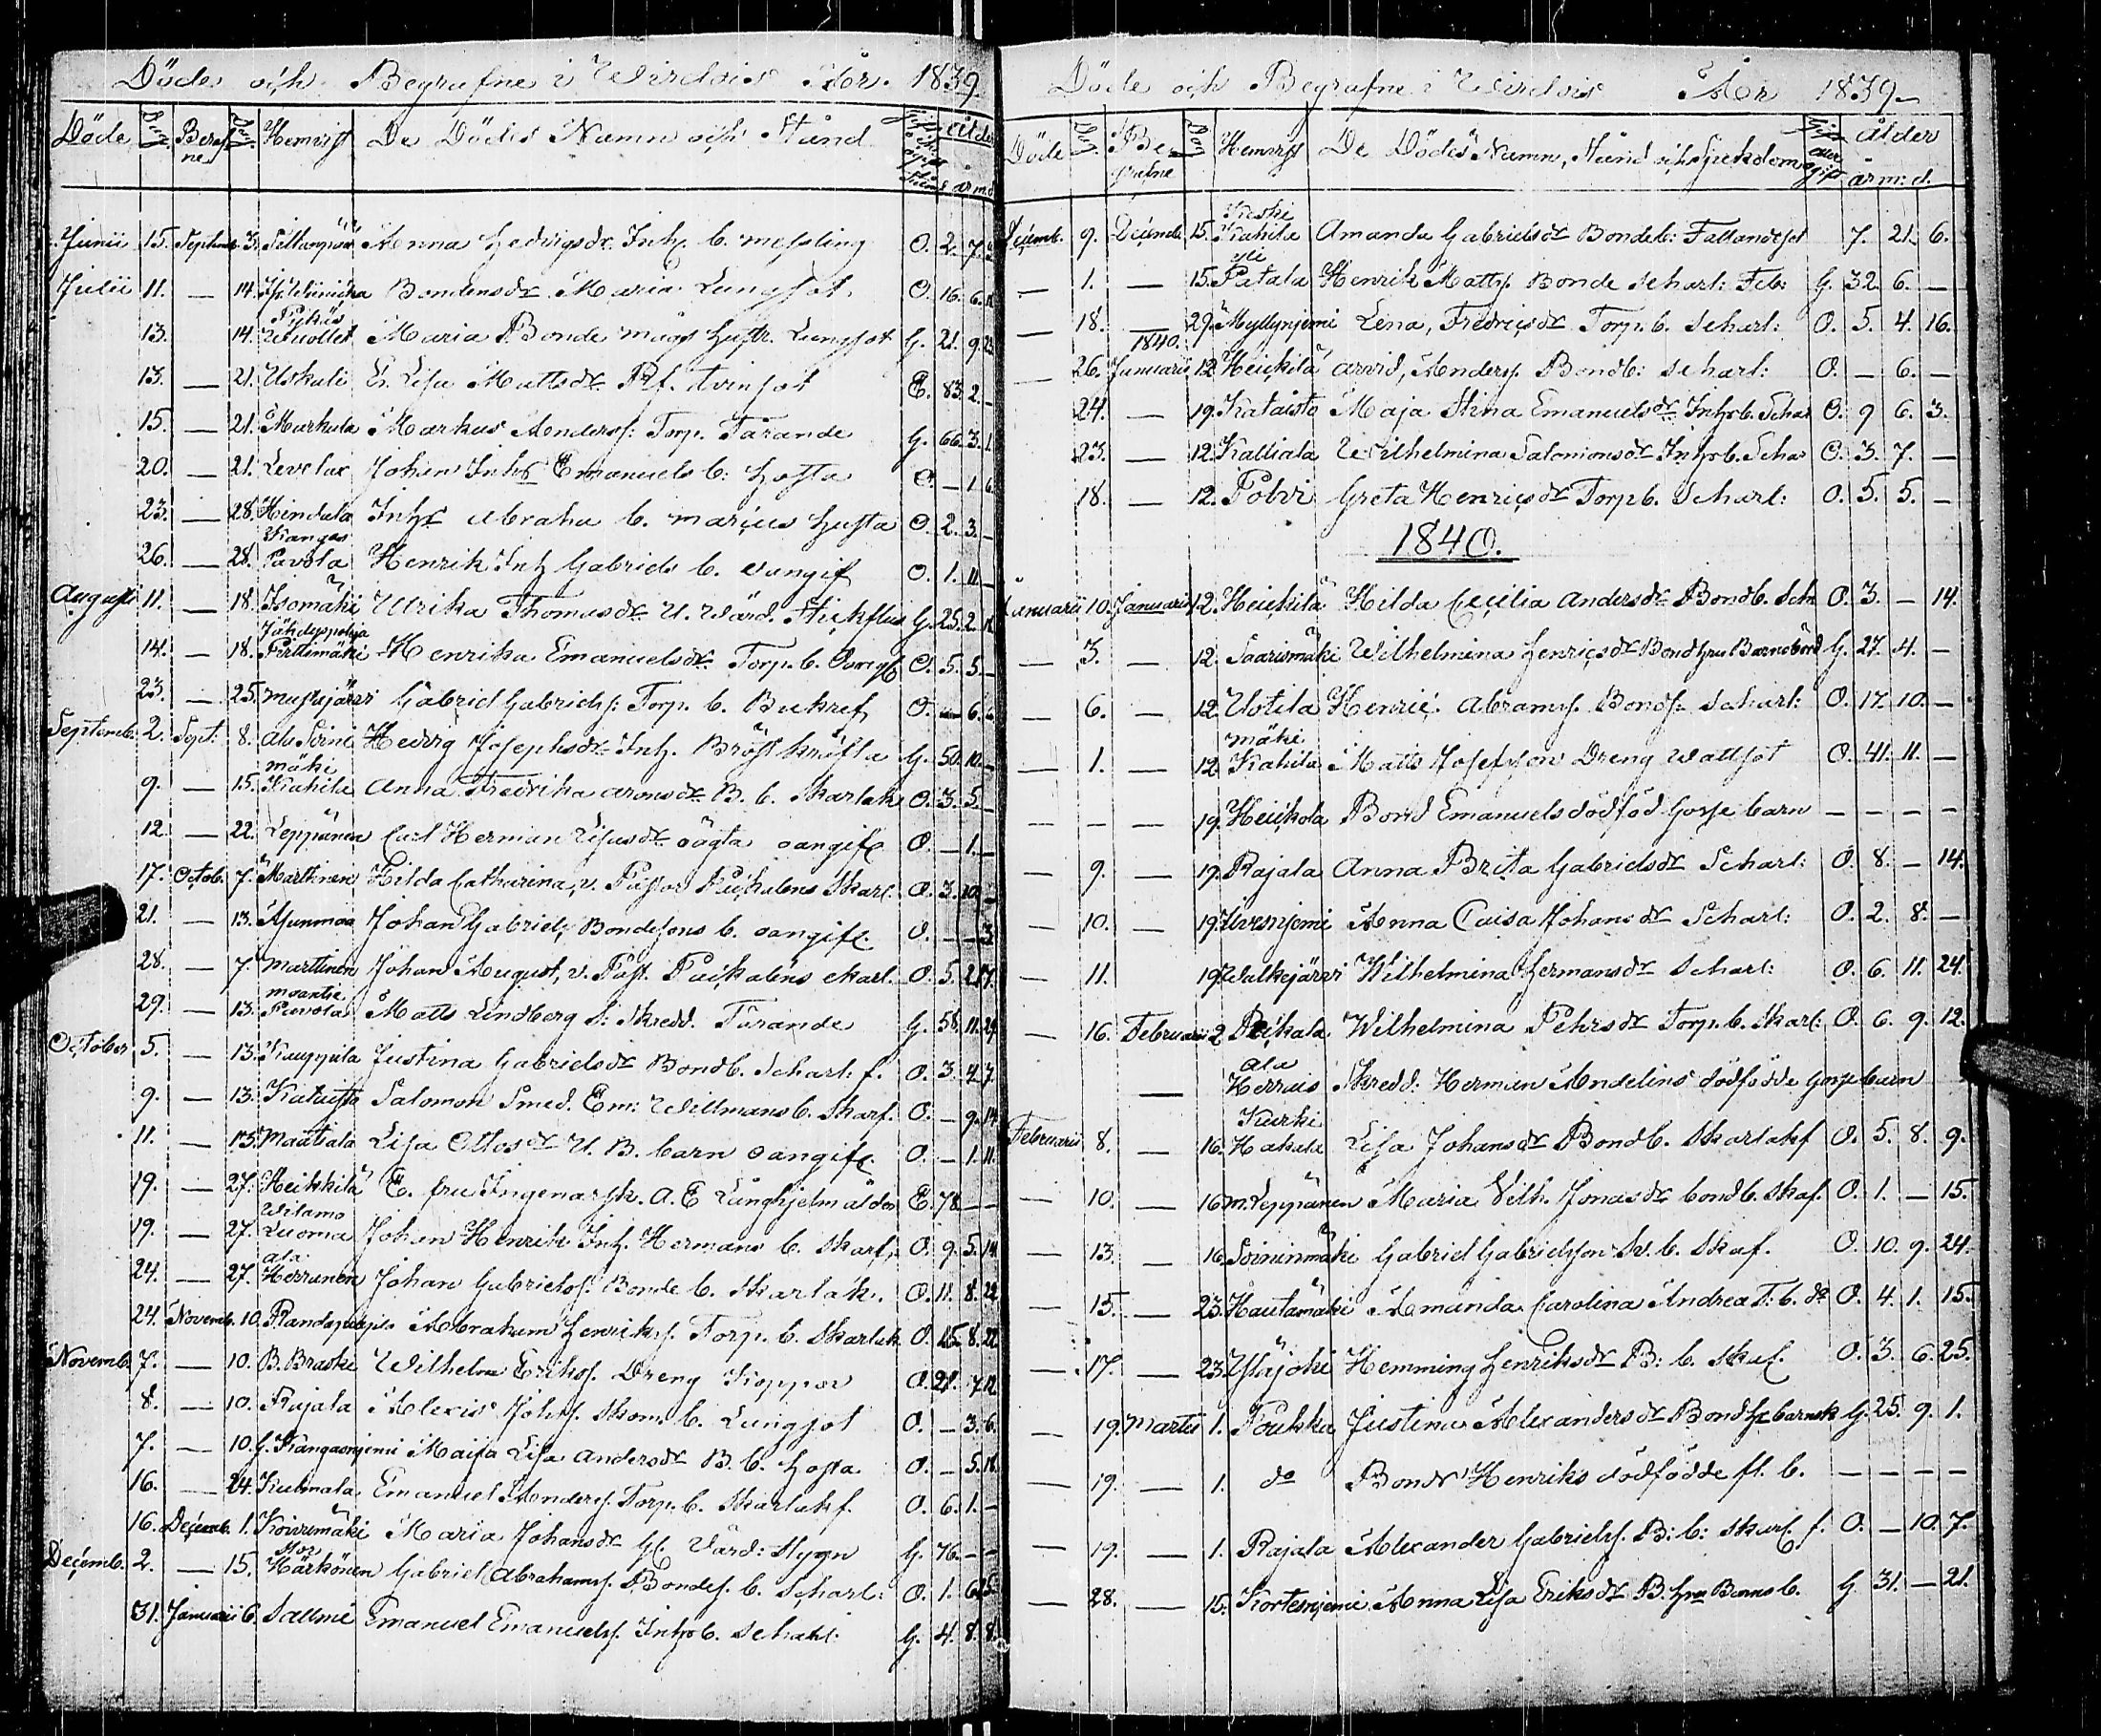 Döde och Begrafne i Wirdois År. 1839
Döde Dag Begrafne Dag Hemvist De Dödes Namn och Stånd Ålder år m. d.
Junii 15. Septemb. 3. Anna Hedvigsdr. Inh. b. messling O. 2. 7.
Julii 11. — 14. Bondensdr. Maria Lungsot O. 16. 6.
13. 14. Maria Bonde mågs hustr. Lungsot G. 21. 9. 23
13. — 21. Uskali E. Lisa Mattsdr. Tvinsot E. 83. 2. —
15. — 21. Markula Markus Anderss: Torp. Tärande G. 66. 3. 1.
20. — 21. Levelax Johan Inhs Emanuels b: Hosta O. — 1 6.
23. — 28. Hindala Inhs Abraha b. marius Husta O. 2. 3. —
Kangas
26. — 28. Pavola Henrik Inh Gabriels b. oangif O. 1. 11. —
Augusti 11. — 18. Isomäki Ulrika Thomasdr. U. Wärd. Stickfluss G. 25. 2.
Jähdyspohja
14. — 18. Pirttimäki Henrika Emanuelsdr. Torp. b. Oangf O. 5. 5. —
23. — 25. Gabriel Gabrielss: Torp. b. Bukref O. — 6.
Septemb. 2. Sept. 8. Hedvig Josephsdr. Inh. Bröstkräfta G. 50. 10. —
mäki
9. — 15. Kahila Anna Fredrika Aronsdr. B. b. Skarlak O. 3. 5. —
12. — 22. Leppänen Carl Herman Lisasdr. oägta oangifv O. — 1. —
17. Octob. 7. Marttinen Hilda Catharina, v. Pastor Skarl. O. 3. 10.
21. — 13. Ajunmaa Johan Gabriels Bondesons b. oangifv. O. — — 3
28. — 7. Marttinen Johan August, v. Past. skarl. O. 5. 2. 17.
29. — 13. Pavola Matts Lindberg S: Skredd. Tärande G. 58. 11. 24
October 5. — 13. Kauppila Justina Gabrielsdr. Bondb. Scharl: f. O. 3. 4. 7.
9. — 13. Kataista Salomon Smed. Em: Willmans b. Skarf. O. — 9. 14
11. — 13. Maatiala Lisa Ottosdr. U. B. barn oangifv. O. — 1. 11.
19. — 27. Heikkilä E. fru Ingenarsk. A. E Ljunghjelm ålder E. 78 — —
Witamo
19. — 27. Luoma Johan Henrik Inh. Hermans b. Skarf. O. 9. 5. 14
ala
24. — 27. Herranen Johan Gabrielss. Bonde b. Skarlak. O. 11. 8. 22
24. Novemb. 10. Abraham Henrikss. Torp. b. Skarlak O. 15. 8. 22
Novemb. 7. — 10. B. Braski Wilhelm Erikss. Dreng Koppor O. 21. 7. 12
8. — 10. Rajala Alexis Johss. Skom. b. Lungsot O. — 3. 6.
7. — 10. G. Kangasniemi Maija Lisa Andersdr B. b. Hosta O. — 5. 18
16. — 24. Kulmala Emanuel Anderss. Torp. b. Skarlakf. O. 6. 1. —
16. Decemb. 1. Koivumäki Maria Johansdr. Gl. Värd: Slygn G. 76. — —
Stor
Decemb. 2. — 15. Härkönen Gabriel Abrahamss. Bondes. b. Scharl: O. 1. 6.
31. Januarii 6. Sallmé Emanuel Emanuelss. Inhs b. Scharl. G. 4. 8. 8.
Döde och Begrafne i Wirdois År 1839—
Döde Dag Begrafne Dag Hemvist De Dödes Namn, Stånd och Sjukdom Gift eller ogift ålder år m: d.
Keski
Decemb. 9. Decemb. 15. Kahila Amanda Gabrielsdr Bondeb: Fallandesot 7. 21. 6.
yli
— 1. — 15. Patala Henrik Matts. Bonde Scharl: Feb: G. 32. 6. —
— 18. — 29. Myllyniemi Lena, Fredricsdr Torp. b. Scharl: O. 5. 4. 16.
1840.
— 26. Januarii 12 Heickilä Arvid, Anders. Bondb: Scharl: O. — 6. —
24. — 19. Kataisto Maja Stina Emanuelsdr Inhs b. Schar O. 9 6. 3.
23. — 12. Kalliala Wilhelmina Salomonsdr. Inhs b. Schar O. 3. 7. —
18. — 12. Polvi Greta Henricsdr Torp b. Scharl: O. 5. 5. —
1840.
Januarii 10. Januarii 12. Heickilä Hilda Cecilia Andersdr Bondb. Sch O. 3. — 14.
— 3. — 12. Saarismäki Wilhelmina Henricsdr Bondhru Barnsbörd G. 27. 4. —
— 6. — 12. Uotila Henric Abrams. Bonds. Scharl: O. 17. 10. —
mäki
— 1. — 12 Kahila Matts Josefsson Dreng Wattsot O. 41. 11. —
— — — 19. Heickola Bond Emanuels dödfödd Gosse barn — — — —
— 9. — 19. Rajala Anna Brita Gabrielsdr Scharl: O. 8. — 14.
— 10. — 19. Anna Caisa Johansdr Scharl: O. 2. 8. —
— 11. 19. Valkejärvi Wilhelmina Hermansdr Scharl: O. 6. 11. 24.
— 16. Februarii 2 Wilhelmina Pehrsdr Torp. b. Skarl: O. 6. 9. 12.
ala
— Herrais Skredd: Herman Andelins dödfödde gosse barn
Kurki
Februarii 8. — 16. Hakala Lisa Johansdr Bondb. Skarlakf O. 5. 8. 9.
— 10. — 16 m. Leppänen Maria Vilh. Jonasdr bondb. skaf. O. 1. — 15.
— 13. — 16. Soininmäki Gabriel Gabrielsson Sv. b. Skaf. O. 10. 9. 24.
— 15. — 23. Hautamäki Amanda Carolina Andrea T: b. do O. 4. 1. 15.
— 17. — 23. Yläjoki Hemming Henriksdr B: b. Skaf. O. 3. 6. 25.
— 19. Martii 1. Pouhka Justina Alexandersdr Bondhr barnsb G. 25. 9. 1.
— 19. — 1. do Bond Henriks dödfödde fl. b. — — — —
— 19. — 1. Rajala Alexander Gabrielss. B: b: skarl. f. O. — 10. 7.
— 28. — 15. Kortesniemi Anna Lisa Eriksdr B. hru Barns b. G 31. — 21.